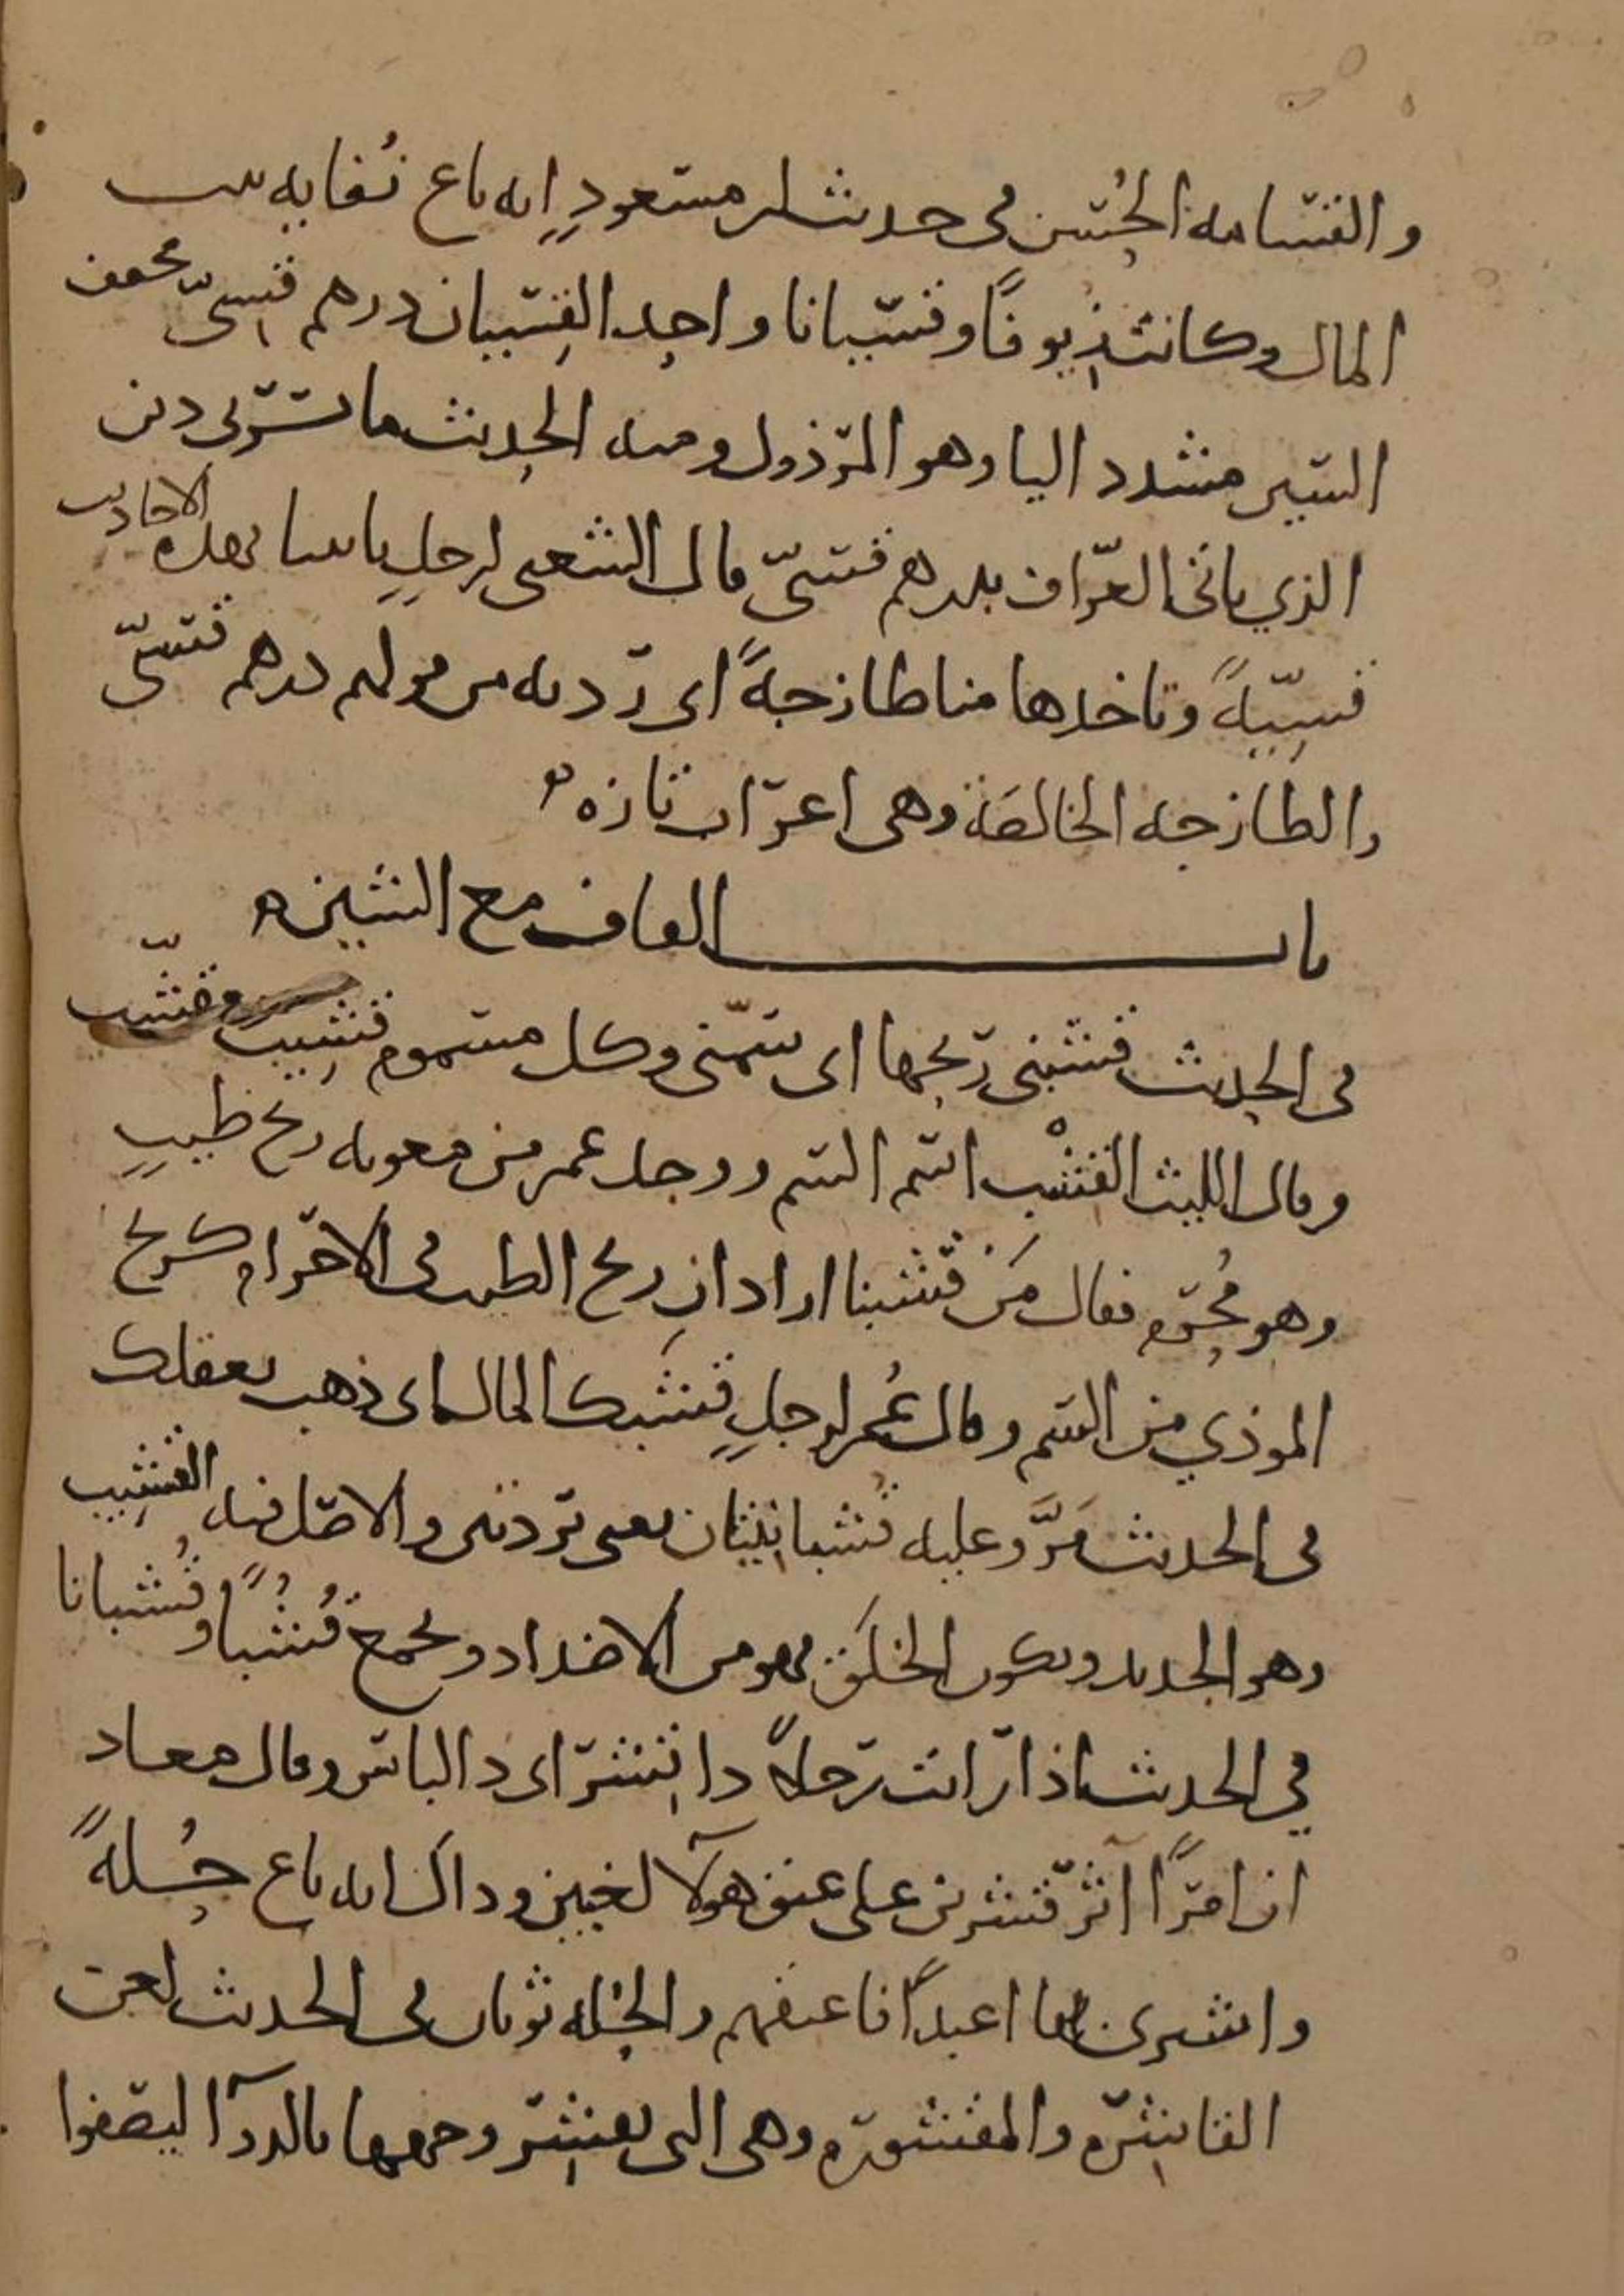 والقسامه الحسن في حديث ابن مسعود انه باع نفايه بيت
المال وكانت زيوفًا وقسيانا واحد القسيان درهم قسيّ مخفف
السين مشدد اليا وهو المرذول ومنه الحديث ما يسرني دين
الذي ياتي العراف بدرهم قسيّ قال الشعبي لرجلٍ ياتينا بهذه الاحاديث
قسيّةً وتاخذها منا طازجةً اي رديه من قولهم درهم قسيّ
والطازجه الخالصَة وهي اعراب تازه
باب القاف مع الشين
في الحديث قشبني ريحها اي سمّني وكل مسموم قشيب ومقشّب
وقال الليث القشْب اسم السم ووجد عمر من معويه ريح طيبٍ
وهو مُحرم فقال مَن قشبنا اراد ان ريح الطيب في الاحرام كريح
الموذي من السم وقال عُمر لرجلٍ قشبك المال اي ذهب بعقلك
في الحديث مَرَّ وعليه قُشبانيتان يعني بردتين والاصل فيه القشيب
وهو الجديد ويكون الخلَق فهو من الاضداد ويجمع قُشُبًا وقُشبانا
في الحديث اذا رايت رجلاً ذا قشر اي ذا لباس وقال معاذ
ان امرًا آثر قشرتين على عتق هولآ لغبين وذاك انه باع حُلةً
واشترى بها اعبدًا فاعتقهم والحُله ثوبان في الحديث لعن
القاشِره والمقشوره وهي التي تقشر وجهها بالدوآ ليصفوا